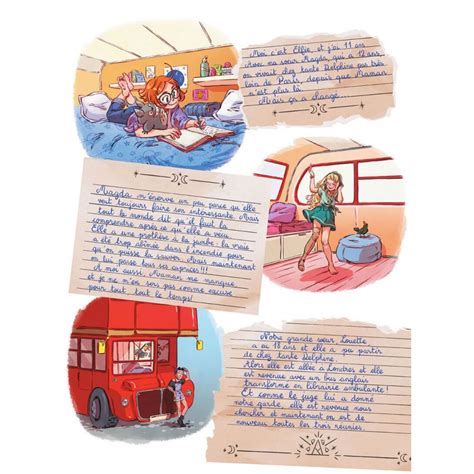 Moi c'est Elfie, et j'ai 11 ans
avec ma sœur Magda, qui a 12 ans,
on vivait chez tante Delphine pas très
loin de Paris, depuis que Maman
n'est plus là.
Mais ça a changé...
Magda m'énerve un peu parce qu'elle
veut toujours faire son intéressante. Mais
tout le monde dit qu'il faut la
comprendre après ce qu'elle a vécu.
Elle a une prothèse à la jambe : la vraie
a été trop abîmée dans l'incendie pour
qu'on puisse la sauver. Mais maintenant
on lui passe tous ses caprices !!!
À moi aussi, Maman me manque,
et je ne m'en sers pas comme excuse
pour tout, tout le temps!
Notre grande sœur Louette
a eu 18 ans et elle a pu partir
de chez tante Delphine
Alors elle est allée à Londres et elle
est revenue avec un bus anglais
transformé en librairie ambulante!
Et comme le juge lui a donné
notre garde, elle est revenue nous
chercher et maintenant on est de
nouveau toutes les trois réunies.